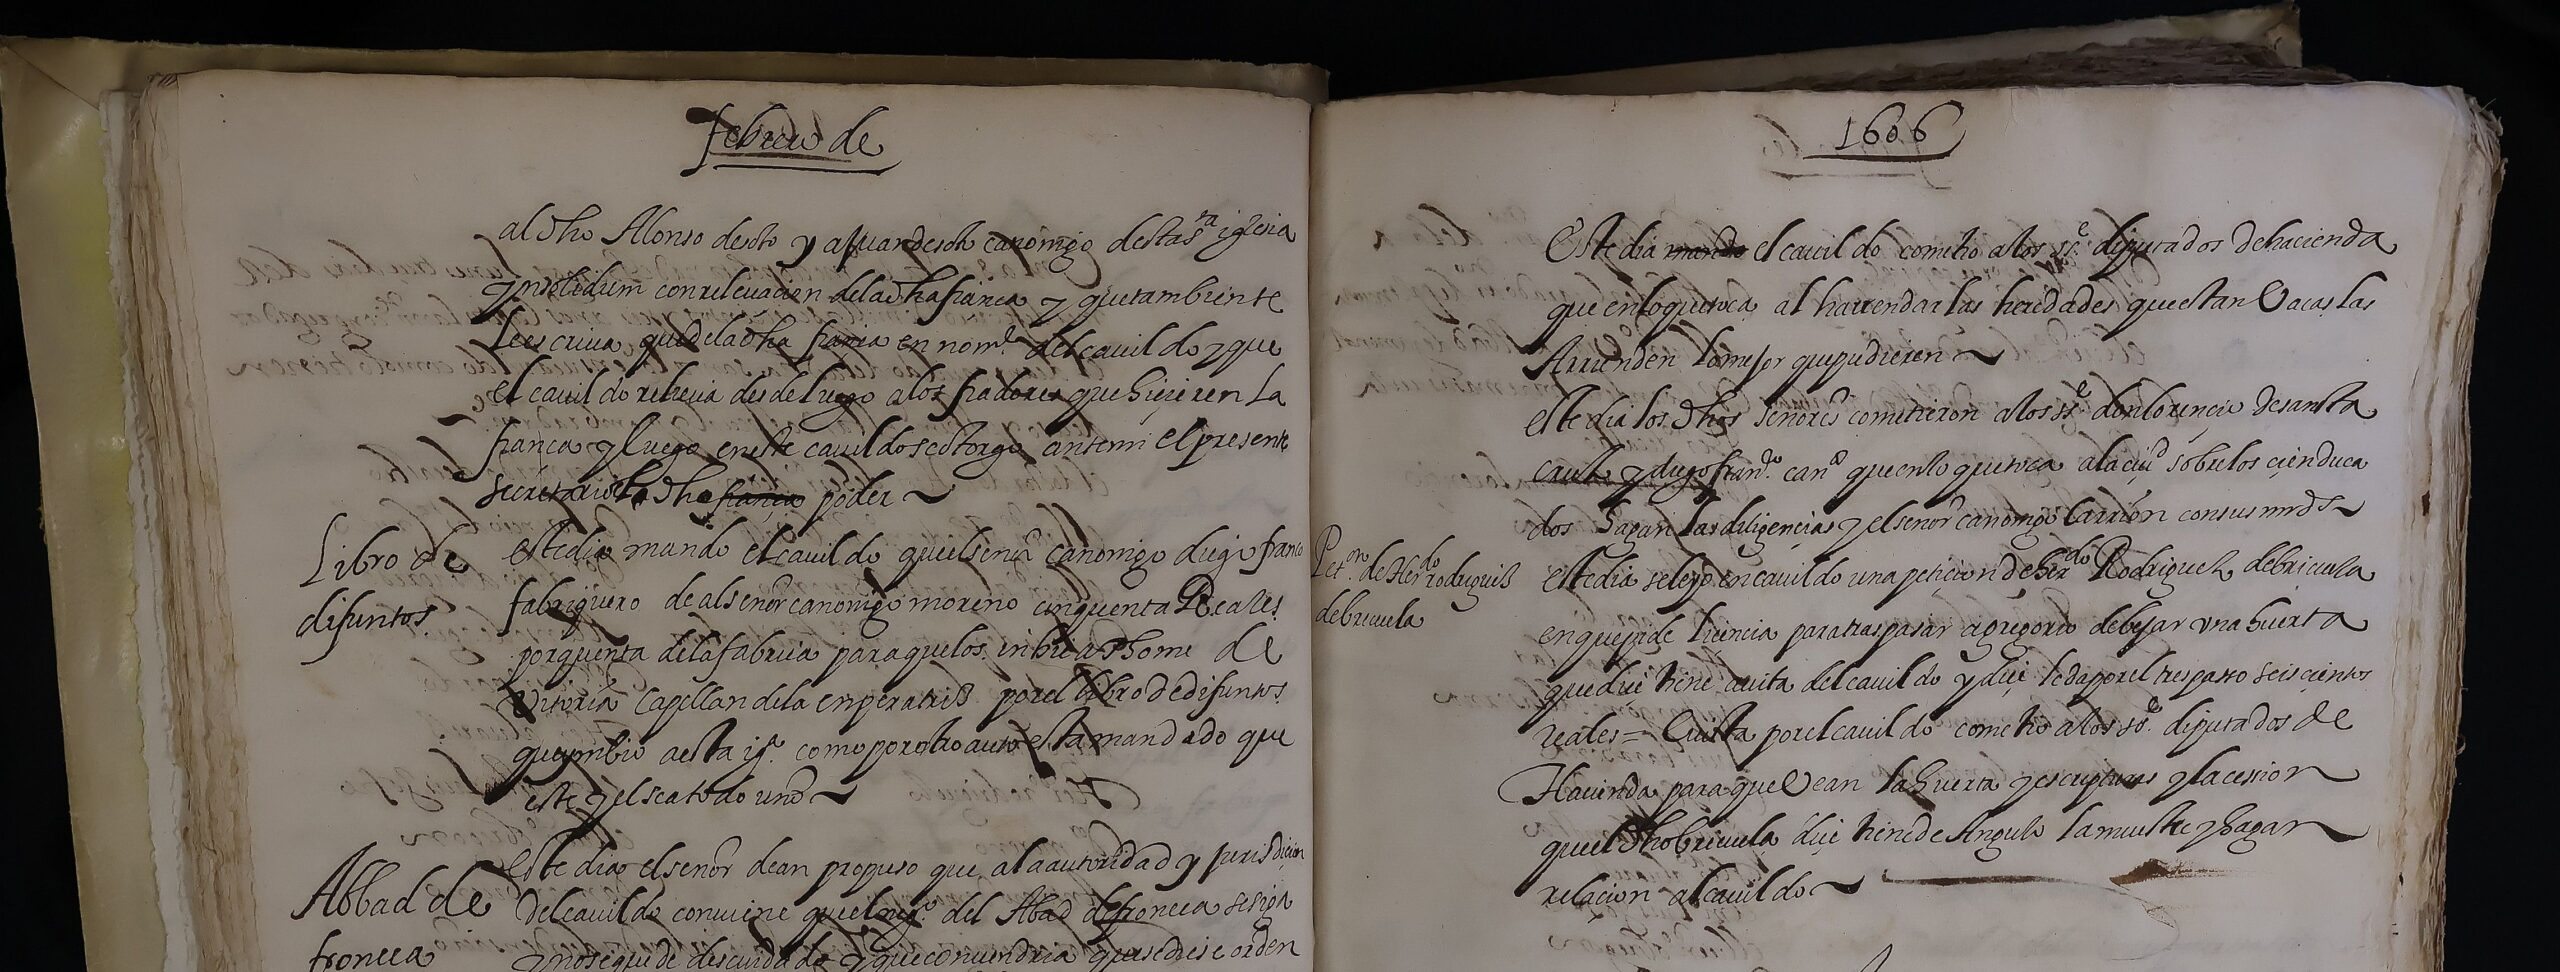 febrero de
al dho Alonso desoto y a juan desoto canonigo desta sta iglesia
ynsolidum con relevacion dela dha fiança y que tambien se
le escriva que de la dha fiança en nome. del cavildo y que
el cavildo relieva desde luego a los fiadores que hiçieren la
fiança y luego en este cavildo se otorgo ante mi el presente
secretario el dho fiança poder
Libro de
difuntos
este dia mando el cavildo que el señor canonigo diego franco
fabriquero de al señor canonigo moreno cinquenta Reales
por quenta de la fabrica para que los inbie a thome de
Vitoria Capellan de la enperatris por el libro de difuntos
que ynbio a esta iga. como por otro auto esta mandado que
este y el sea todo uno
Abbad de
froncea
este dia el señor dean propuso que a la autoridad y jurisdiçion
del cavildo conviene que el nego. del Abad de froncea se siga
y no se quede descuidado y que convendria que se diese orden
1606
Este dia mando el cavildo cometio a los sses. diputados de hacienda
que en lo que toca al harrendar las heredades que estan Vacas las
Arrienden lo mejor que pudieren
este dia los dhos señores cometieron a los sses. don lorenço de santa
cruz y diego franco. cano. que en lo que toca a la ciud. sobre los cien duca
dos hagan las diligençias y el señor canonigo Carrion con sus mrds
Peton. de Herdo rodriguis
de briçuela
este dia se leyo en cavildo una petiçion de Herdo Rodriguez de briçuela
en que pide liçencia para traspasar a gregorio de bejar una huerta
que diçe tiene a vita del cavildo y diçe le da por el traspasso seisçientos
reales = Vista por el cavildo cometio a los sses. diputados de
Hacienda para que Vean la huerta y escripturas y la cession
que el dho briçuela diçe tiene de Angulo la muestre y hagan
relaçion al cavildo